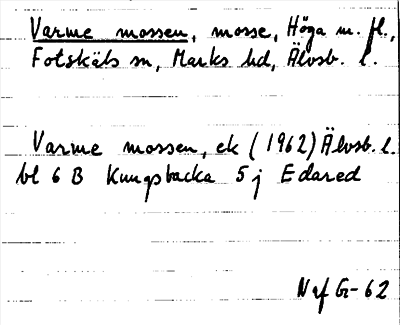 Varme mossen, mosse, Höga m. fl.,
Fotskäls sn, Marks hd, Älvsb. l.
Varme mossen, ek (1962) Älvsb. l.
bl 6 B Kungsbacka 5 j Edared
Naf G-62